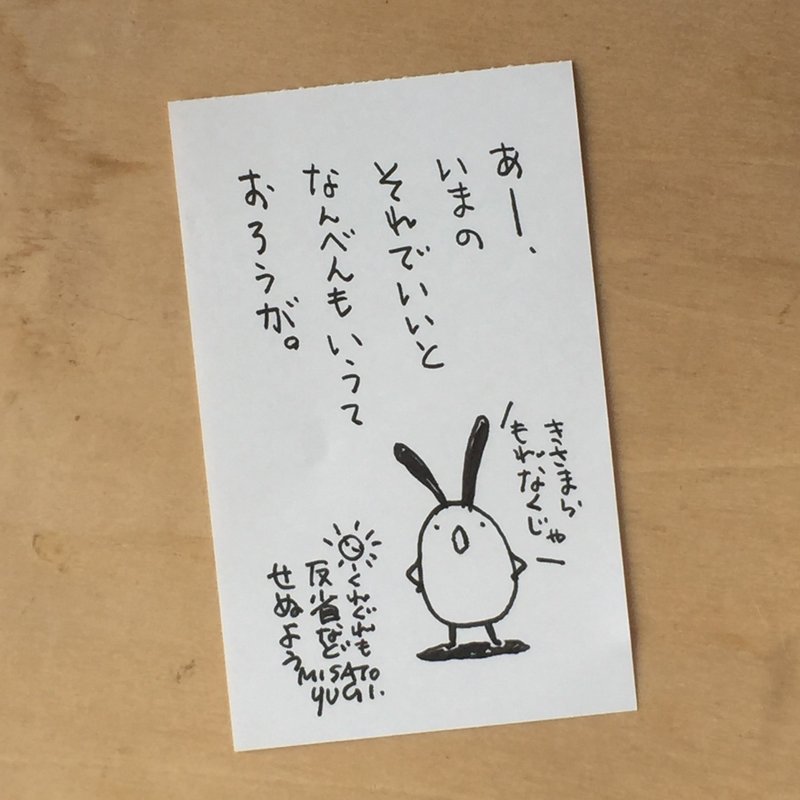 あー、
いまの
それでいいと
なんべんもいうて
おろうが。
きさまら
もれなくじゃ
くれぐれも
反省など
せぬよう
MISATO
YUGI.